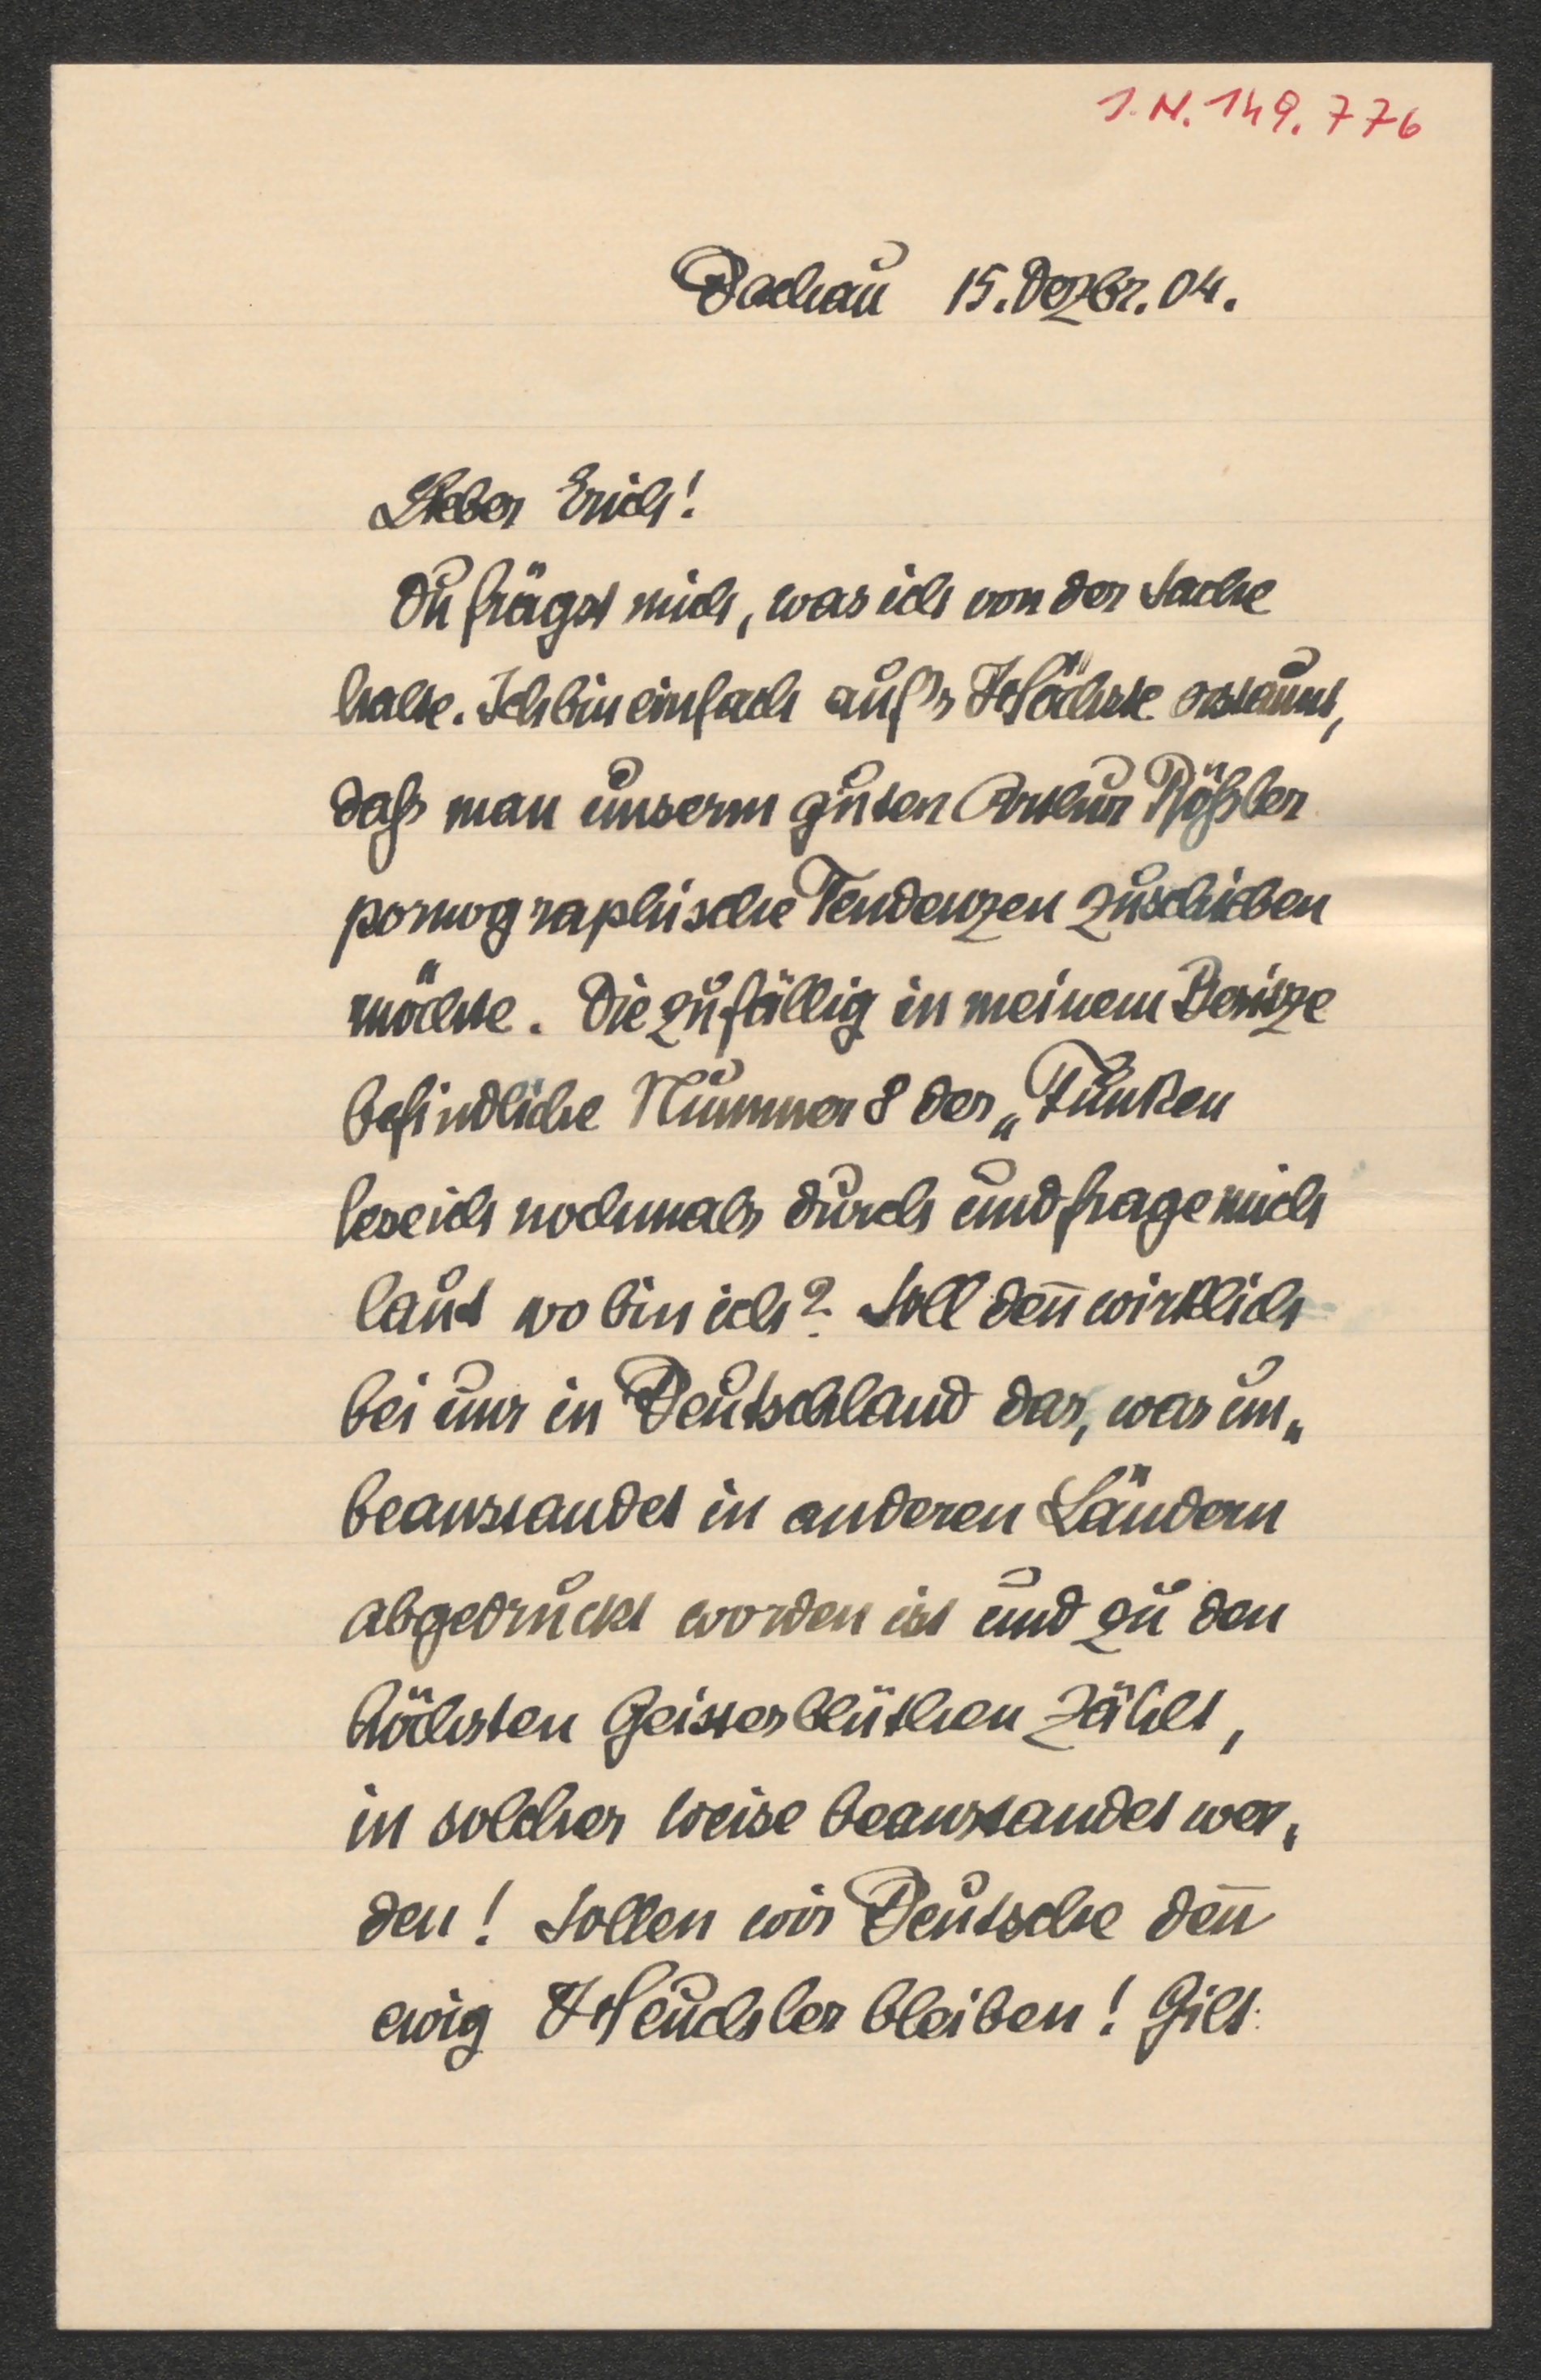 I. N. 149.776
Dachau 15. Dezbr. 04.
Lieber Erich!
Du frägst mich, was ich von der Sache
halte. Ich bin einfach auf's Höchste erstaunt,
daß man unserm guten Arthur Rößler
pornographische Tendenzen zuschieben
möchte. Die zufällig in meinem Besitze
befindliche Nummer 8 der „Funken
lese ich nochmals durch und frage mich
laut wo bin ich? Soll den̅ wirklich
bei uns in Deutschland das, was un„
beanstandet in anderen Ländern
abgedruckt worden ist und zu den
höchsten Geistesblüthen zählt,
in solcher Weise beanstandet wer„
den! Sollen wir Deutsche den̅
ewig Heuchler bleiben! Gilt